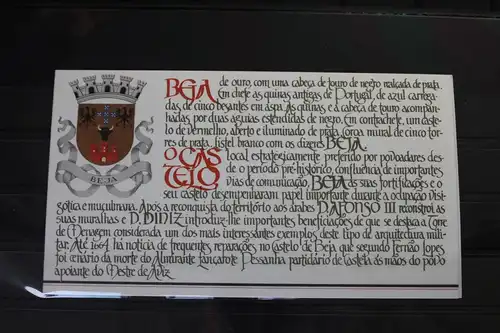 BEJA de ouro, com uma cabeça de touro de negro realçada de prata.
Em chefe as quinas antigas de Portugal, de azul carrega-
das de cinco besantes em aspa. As quinas e a cabeça de touro acompan-
hadas por duas aguias estendidas de negro. Em contrachefe, um caste-
lo de vermelho, aberto e iluminado de prata. Coroa mural de cinco tor-
res de prata, listel branco com os dizeres BEJA.
O CAS
TELO
local estrategicamente preferido por povoadores des-
de o período pré-histórico, confluência de importantes
vias de comunicação, BEJA as suas fortificações e o
seu castelo desempenharam papel importante durante a ocupação visi-
gótica e muçulmana. Após a reconquista do território aos árabes D. AFONSO III reconstroi as
suas muralhas e D. DINIZ introduz-lhe importantes beneficiações de que se destaca a Torre
de Menagem considerada um dos mais interessantes exemplos deste tipo de arquitectura mili-
tar. Até 1664 há notícia de frequentes reparações no Castelo de Beja que segundo Fernão Lopes
foi cenário da morte do Almirante Lançarote Pessanha partidário de Castela às mãos do povo
apoiante do Mestre de Aviz
BEJA